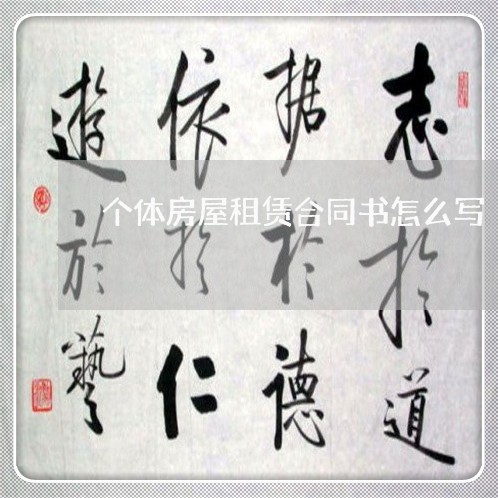 志於道
据於德
依於仁
遊於藝
个体房屋租赁合同书怎么写